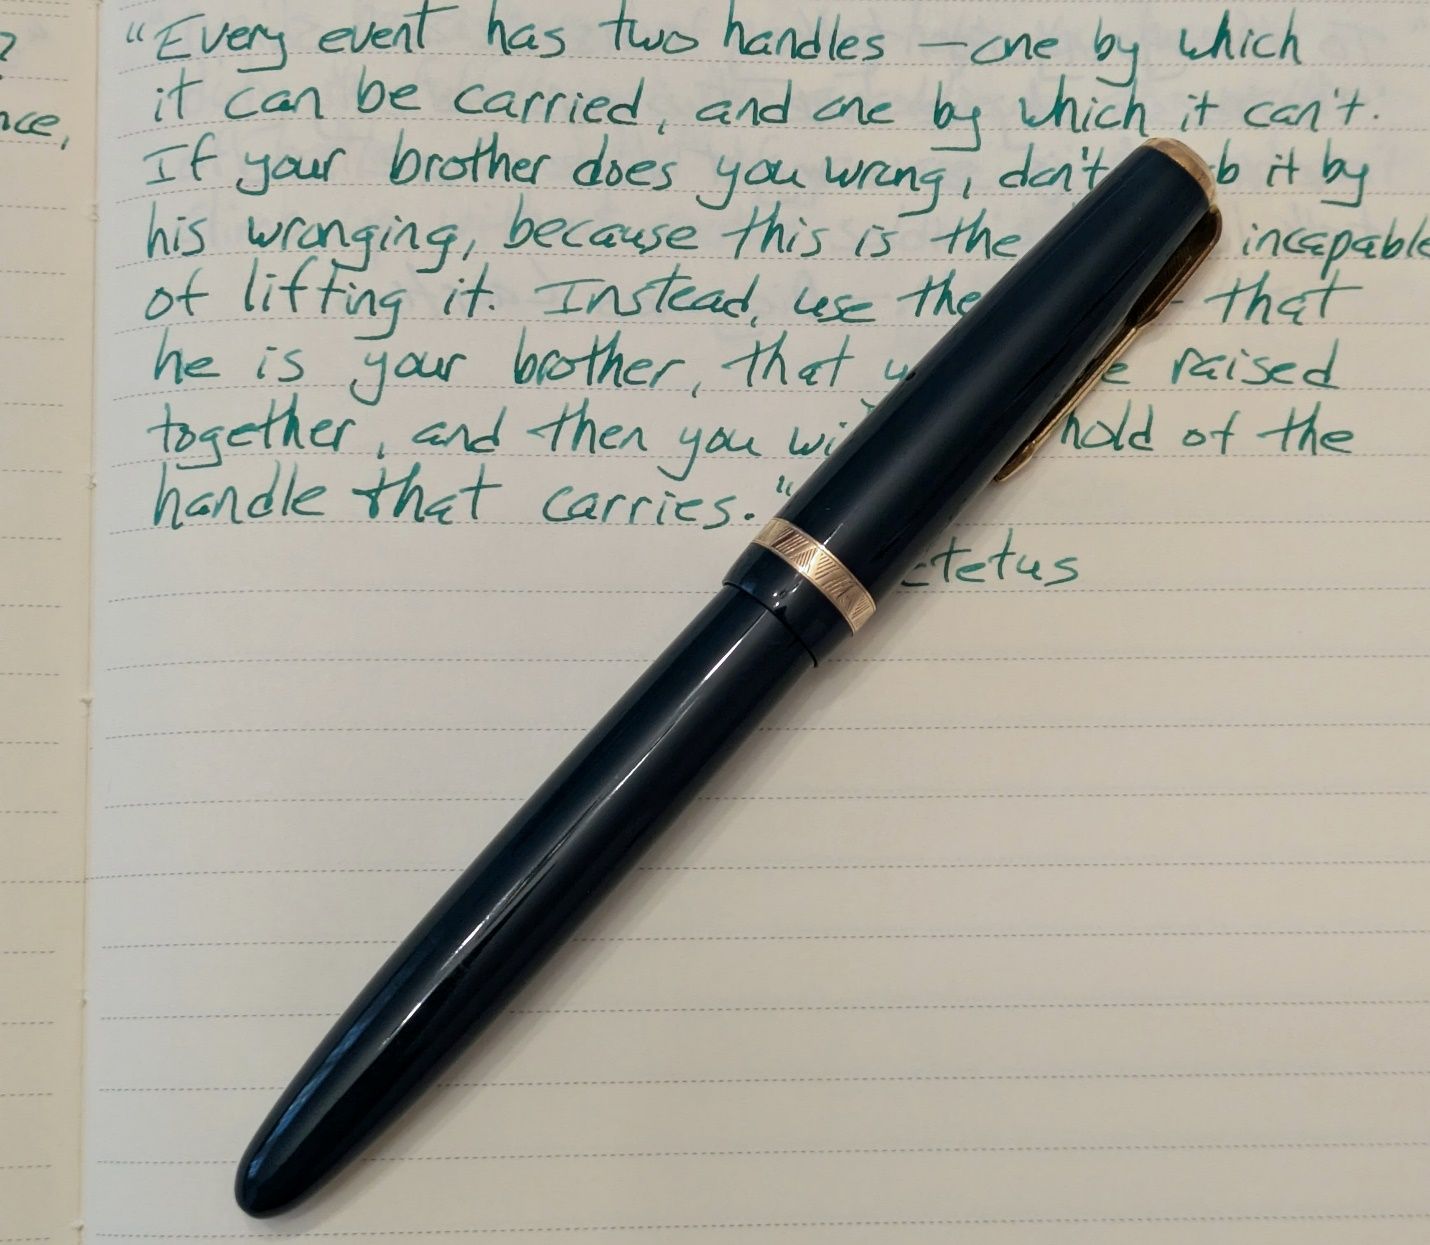 ?
nce,
“Every event has two handles – one by which
it can be carried, and one by which it can't.
If your brother does you wrong, don't it by
his wronging, because this is the incapable
of lifting it. Instead, use the - that
he is your brother, that raised
together, and then you hold of the
handle that carries.“